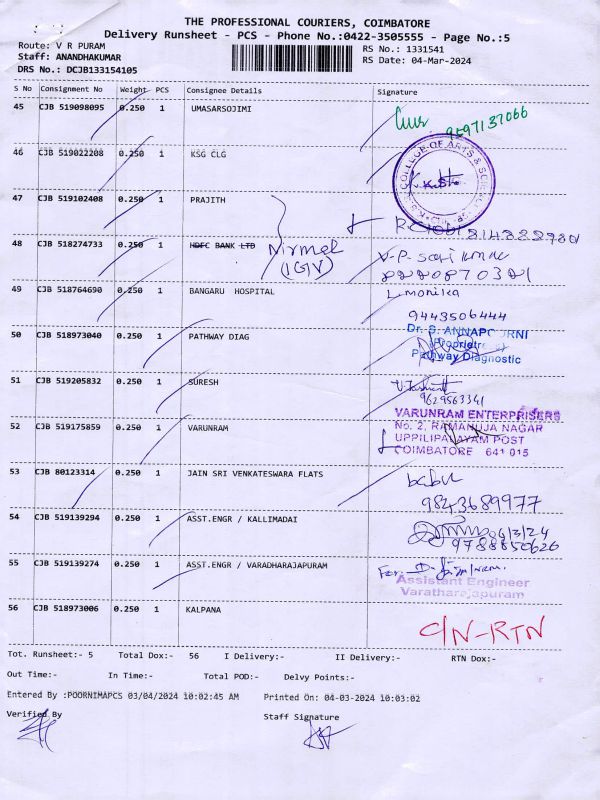 THE PROFESSIONAL COURIERS, COIMBATORE
Delivery Runsheet - PCS - Phone No.:0422-3505555 - Page No.:5
Route: V R PURAM
RS No.: 1331541
Staff: ANANDHAKUMAR
RS Date: 04-Mar-2024
DRS No.: DCJB133154105
S No Consignment No Weight PCS Consignee Details Signature
45 CJB 519098095 0.250 1 UMASARSOJIMI
9597137066
46 CJB 519022208 0.250 1 KSG CLG
COLLEGE OF ARTS &
47 CJB 519102408 0.250 1 PRAJITH
48 CJB 518274733 0.250 1 HDFC BANK LTD Nirmal
(IGIV)
8220870321
49 CJB 518764690 0.250 1 BANGARU HOSPITAL L.monika
9443506444
50 CJB 518973040 0.250 1 PATHWAY DIAG
Dr. S. ANNAPOORNI
(Proprietress)
Pathway Diagnostic
51 CJB 519205832 0.250 1 SURESH
9629563341
52 CJB 519175859 0.250 1 VARUNRAM
VARUNRAM ENTERPRISERS
No. 2, RAMANUJA NAGAR
UPPILIPALAYAM POST
COIMBATORE 641 015
53 CJB 80123314 0.250 1 JAIN SRI VENKATESWARA FLATS babu
9843689977
54 CJB 519139294 0.250 1 ASST.ENGR / KALLIMADAI
9788850626
55 CJB 519139274 0.250 1 ASST.ENGR / VARADHARAJAPURAM For.
Assistant Engineer
Varatharajapuram
56 CJB 518973006 0.250 1 KALPANA
C/N-RTN
Tot. Runsheet:- 5 Total Dox:- 56 I Delivery:- II Delivery:- RTN Dox:-
Out Time:- In Time:- Total POD:- Delvy Points:-
Entered By :POORNIMAPCS 03/04/2024 10:02:45 AM Printed On: 04-03-2024 10:03:02
Verified By Staff Signature